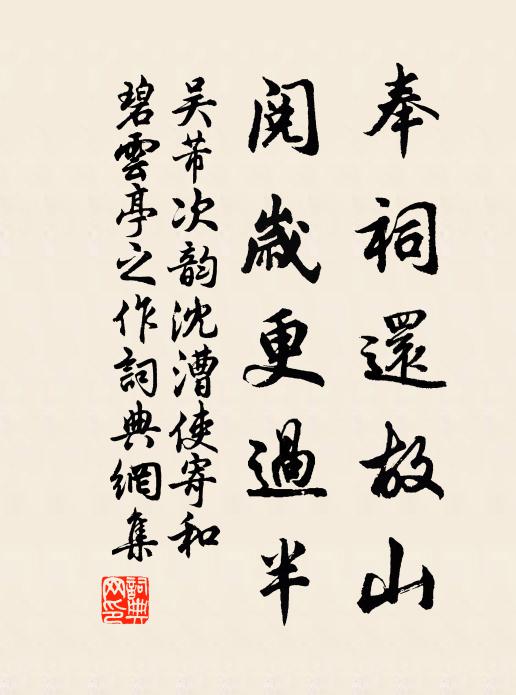 奉祠還故山
閱歲更過半
吳芾次韵沈漕使寄和
碧雲亭之作詞典網集
詞典網印